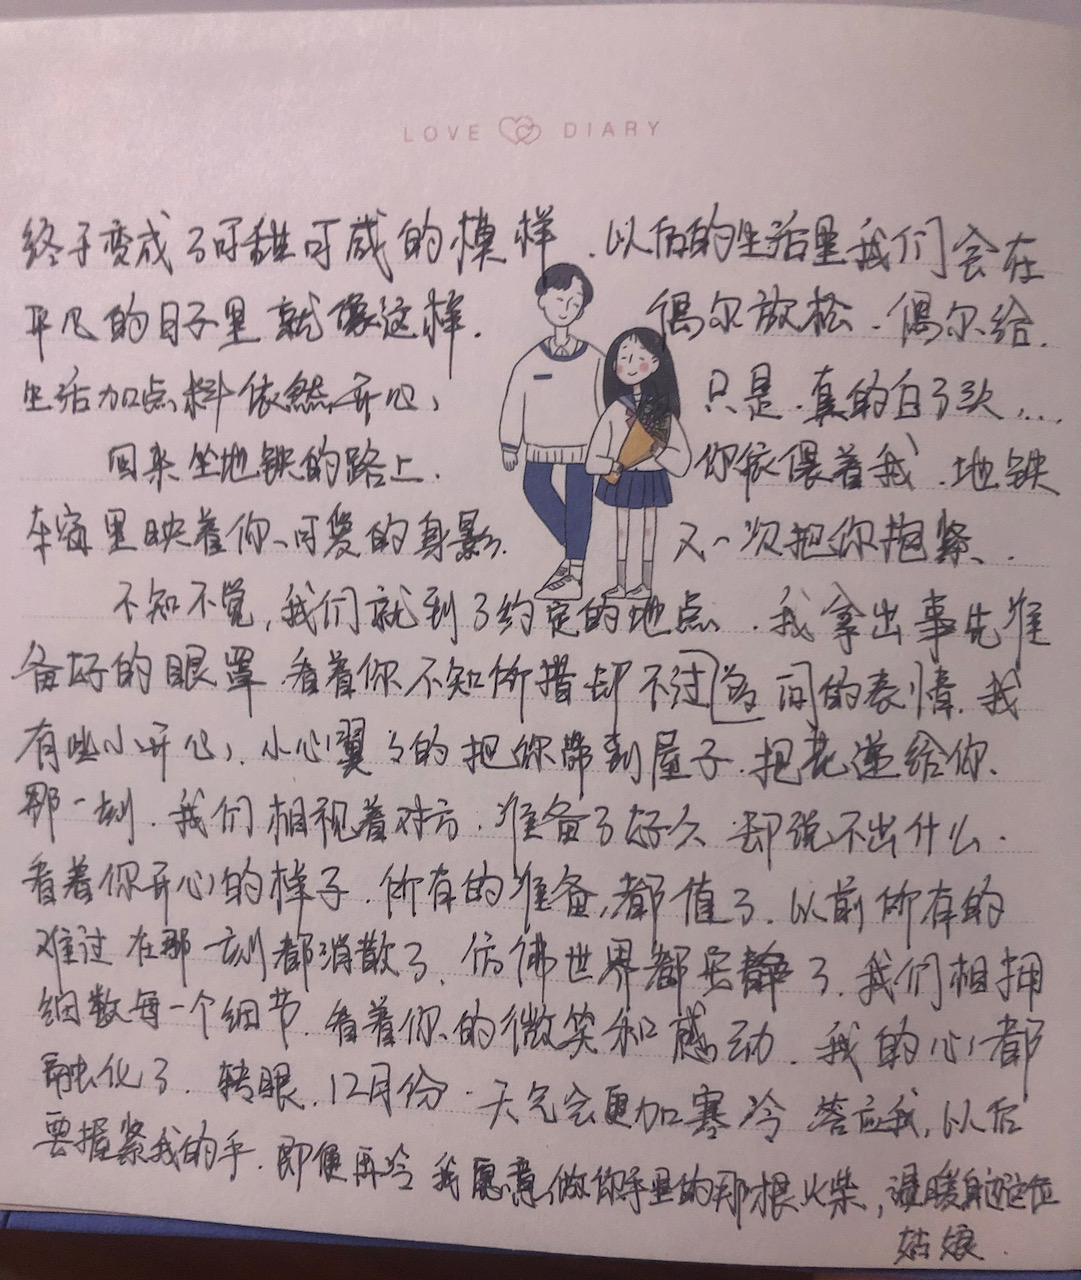 LOVE DIARY
终于变成了可甜可咸的模样、以后的生活里我们会在
平凡的日子里就像这样. 偶尔放松、偶尔给.
生活加点料依然开心, 只是.真的白了头....
回来坐地铁的路上. 你依偎着我.地铁
车窗里映着你、可爱的身影. 又一次把你抱紧、.
不知不觉,我们就到了约定的地点.我拿出事先准
备好的眼罩 看着你不知所措却不过问的表情.我
有些小开心,小心翼了的把你带到屋子.把花递给你、
那一刻.我们相视着对方.准备了好久 却说不出什么.
看着你开心的样子.所有的准备,都值了.以前所有的
难过在那一刻都消散了.仿佛世界都安静了.我们相拥
细数每一个细节.看着你的微笑和感动.我的心都
融化了.转眼.12月份.天气会更加寒冷 答应我,以后
要握紧我的手.即便再冷 我愿意做你手里的那根火柴,温暖身边这位
姑娘.